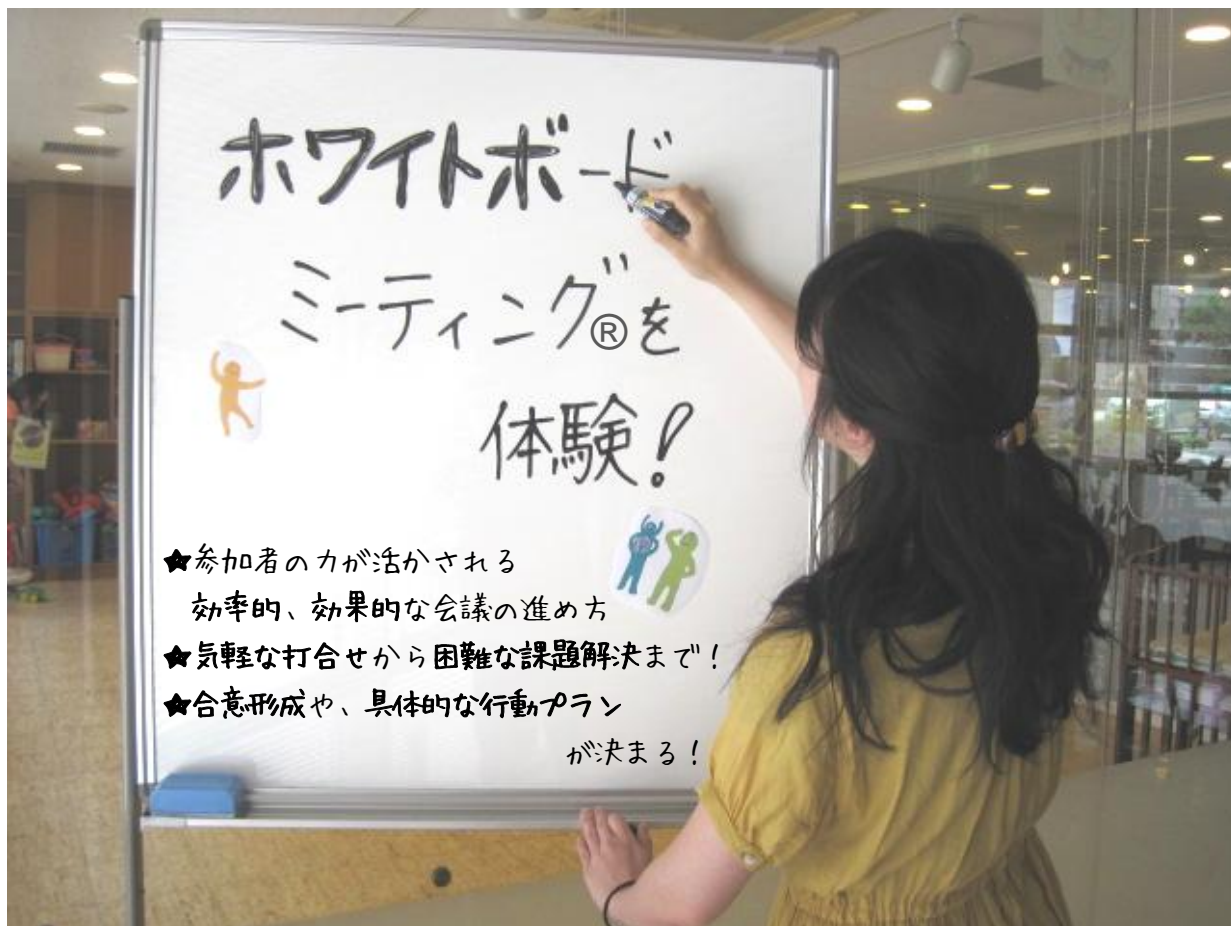 ホワイトボード
ミーティング®を
体験！
★参加者の力が活かされる
効率的、効果的な会議の進め方
★気軽な打合せから困難な課題解決まで！
★合意形成や、具体的な行動プラン
が決まる！